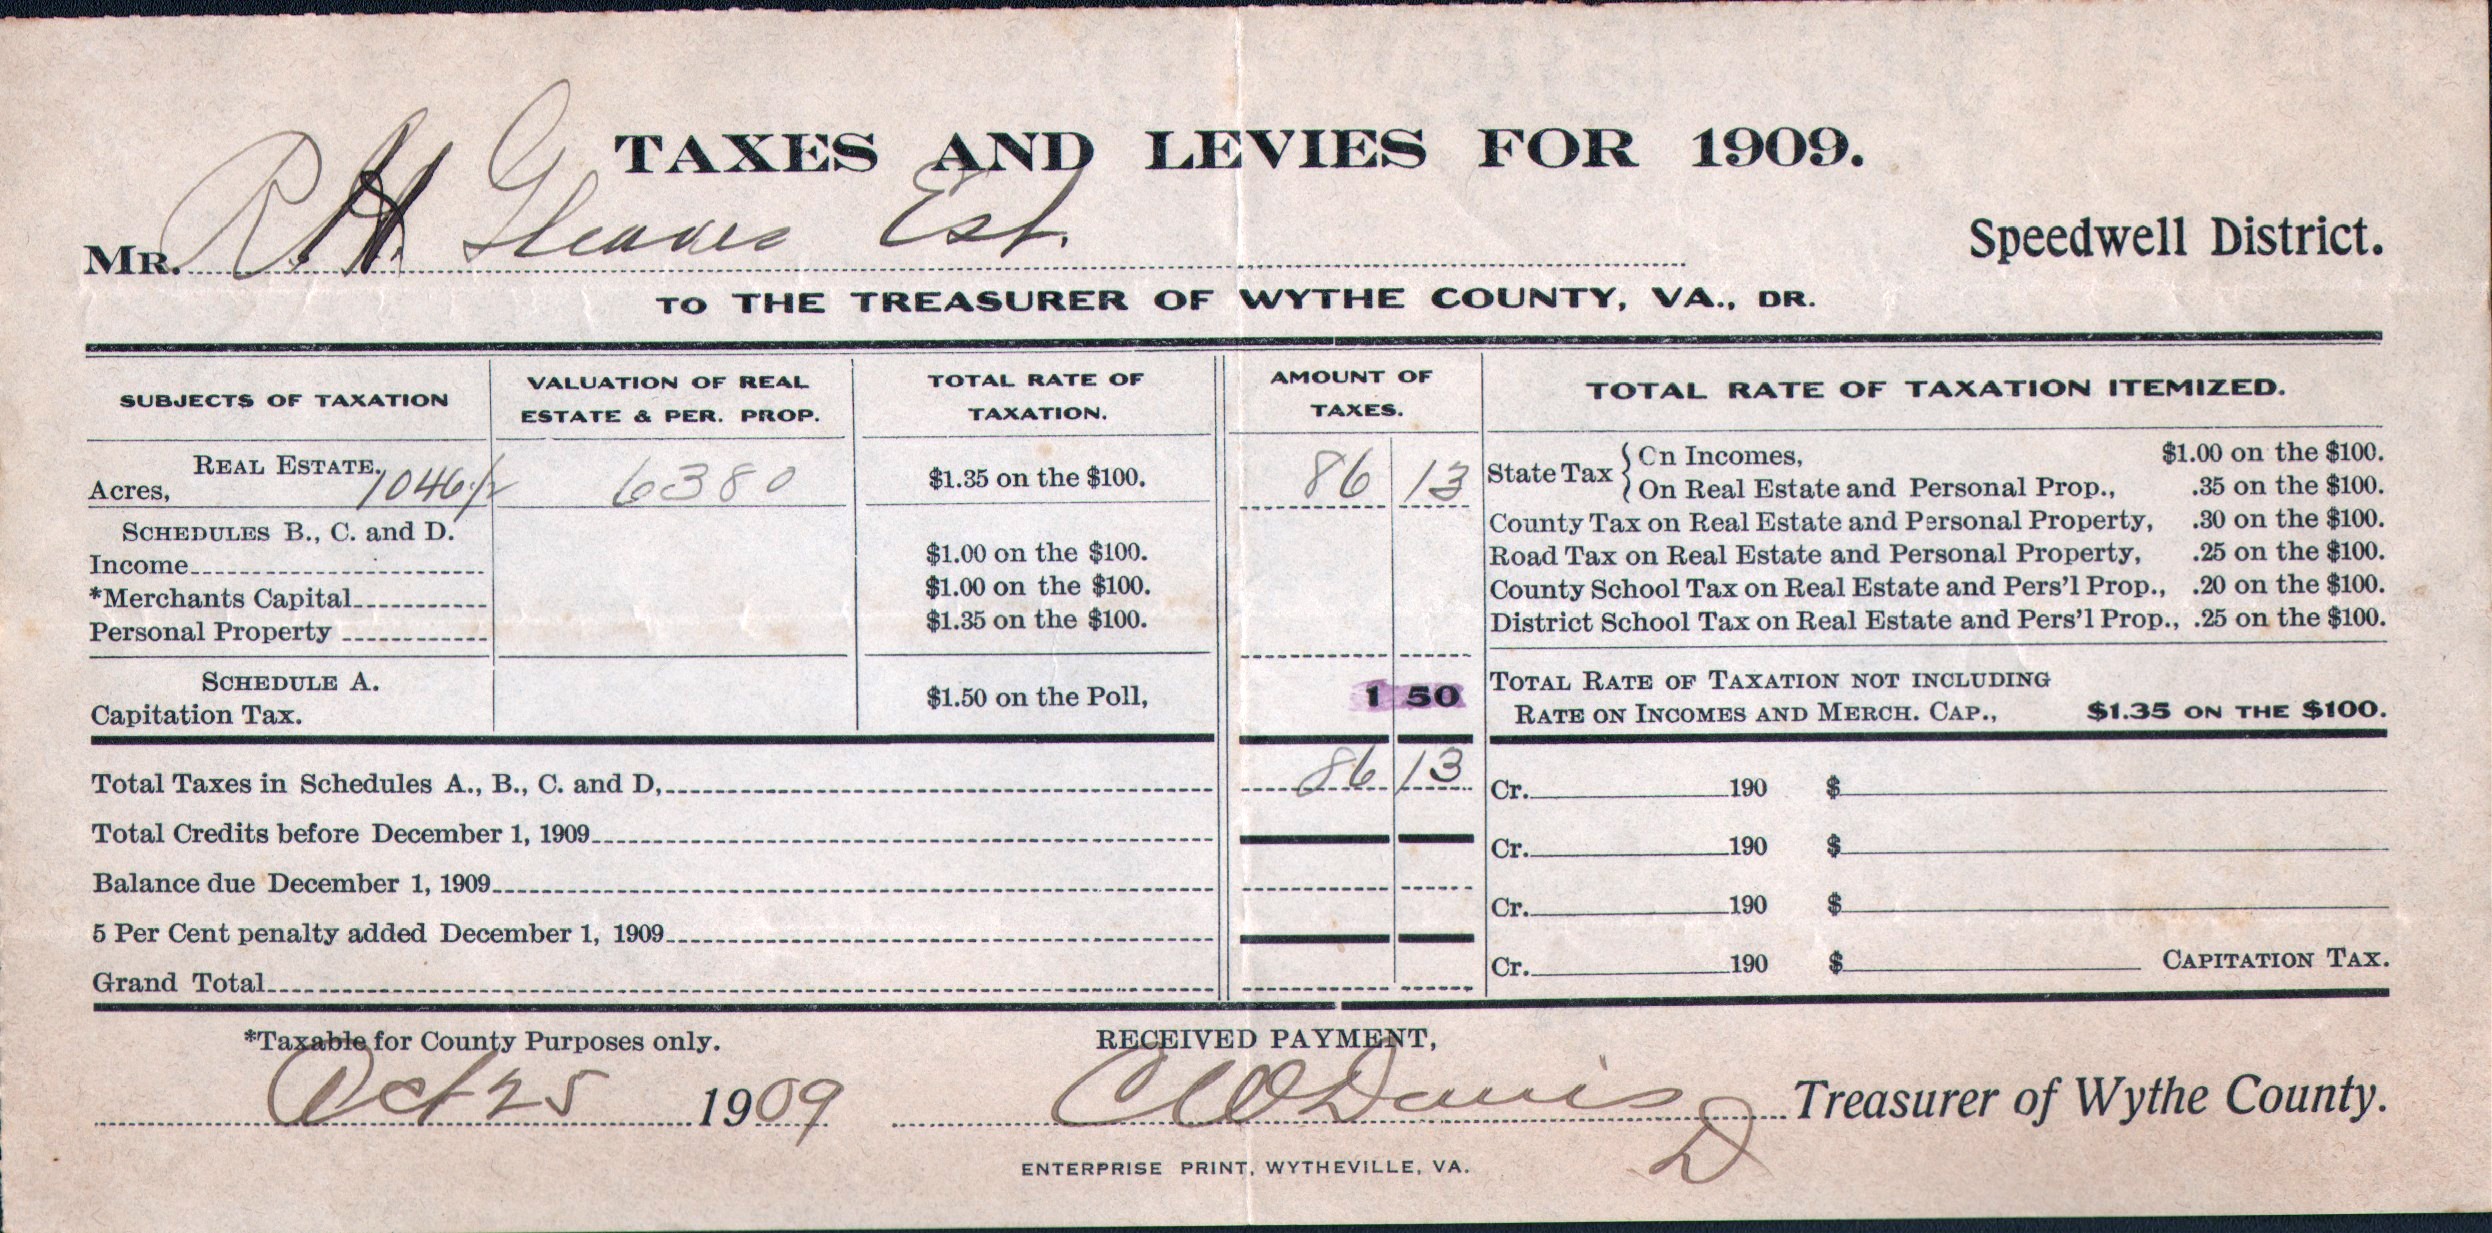 TAXES AND LEVIES FOR 1909.
MR. R. H. Gleaves Est.
Speedwell District.
TO THE TREASURER OF WYTHE COUNTY, VA., DR.
SUBJECTS OF TAXATION
VALUATION OF REAL
ESTATE & PER. PROP.
TOTAL RATE OF
TAXATION.
AMOUNT OF
TAXES.
TOTAL RATE OF TAXATION ITEMIZED.
REAL ESTATE.
Acres, 1046 1/2 6380 $1.35 on the $100. 86 13
SCHEDULES B., C. and D.
Income $1.00 on the $100.
*Merchants Capital $1.00 on the $100.
Personal Property $1.35 on the $100.
SCHEDULE A.
Capitation Tax. $1.50 on the Poll, 1 50
State Tax { On Incomes, $1.00 on the $100.
On Real Estate and Personal Prop., .35 on the $100.
County Tax on Real Estate and Personal Property, .30 on the $100.
Road Tax on Real Estate and Personal Property, .25 on the $100.
County School Tax on Real Estate and Pers'l Prop., .20 on the $100.
District School Tax on Real Estate and Pers'l Prop., .25 on the $100.
TOTAL RATE OF TAXATION NOT INCLUDING
RATE ON INCOMES AND MERCH. CAP., $1.35 ON THE $100.
Total Taxes in Schedules A., B., C. and D, 86 13
Total Credits before December 1, 1909
Balance due December 1, 1909
5 Per Cent penalty added December 1, 1909
Grand Total
Cr. 190 $
Cr. 190 $
Cr. 190 $
Cr. 190 $ CAPITATION TAX.
*Taxable for County Purposes only.
RECEIVED PAYMENT,
Oct 25 1909
C W Davis Treasurer of Wythe County.
D
ENTERPRISE PRINT, WYTHEVILLE, VA.